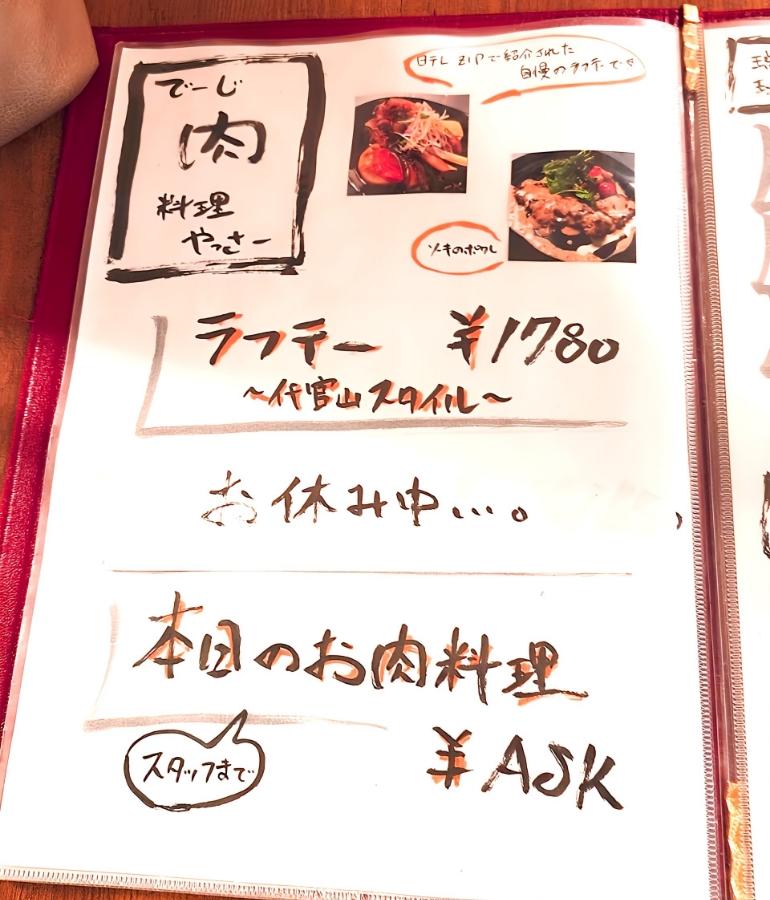 でーじ
肉
料理
やっさー
日テレ ZIPで紹介された
自慢のラフテーです
ソーキのポワレ
ラフテー ¥1780
～代官山スタイル～
お休み中...。
本日のお肉料理
スタッフまで
¥ASK